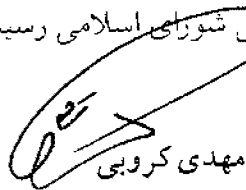 شورای اسلامی رسید
مهدی کروبی